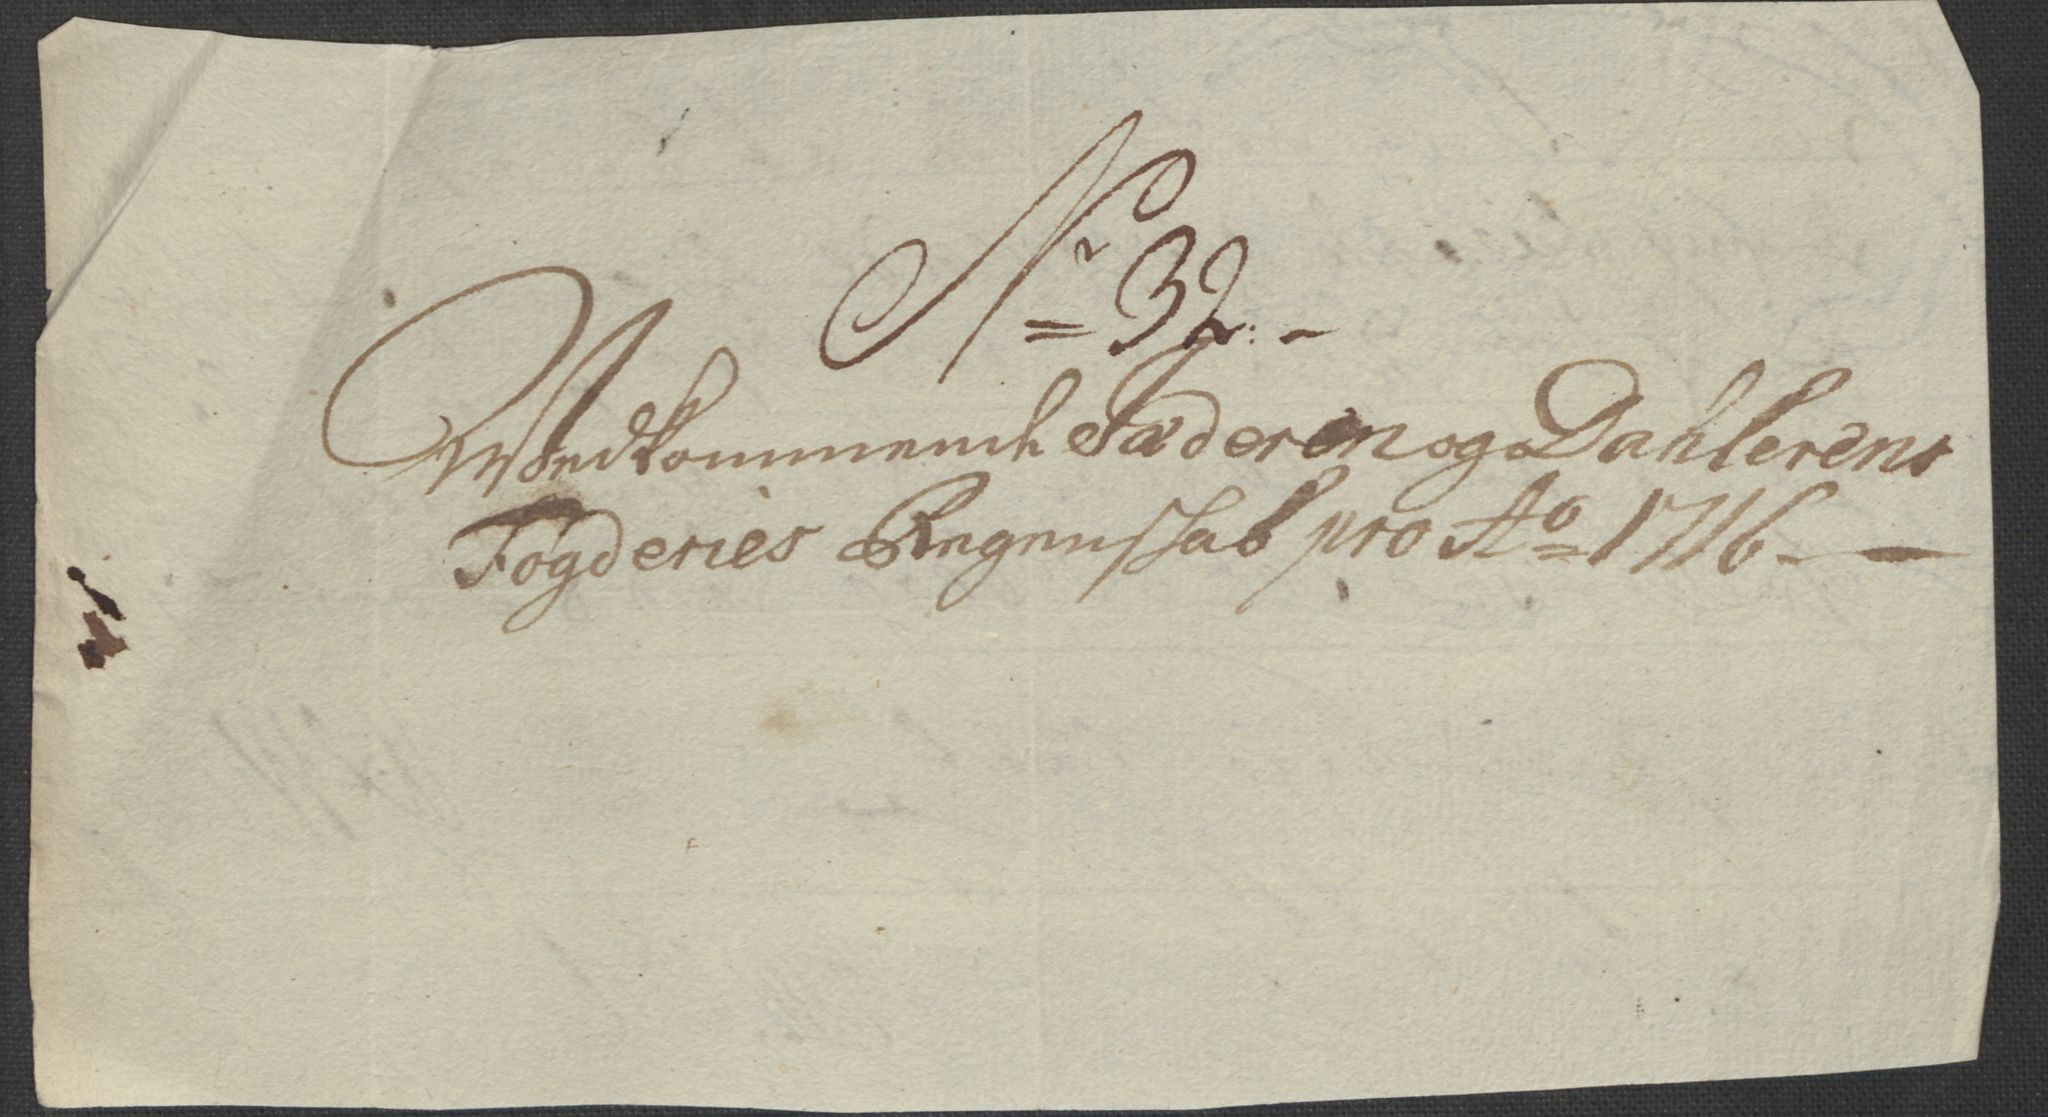 Nr 32:-
Wedkommende Jæderen og Dahlerens
Fogderies Regenskab pro Ao 1716 —